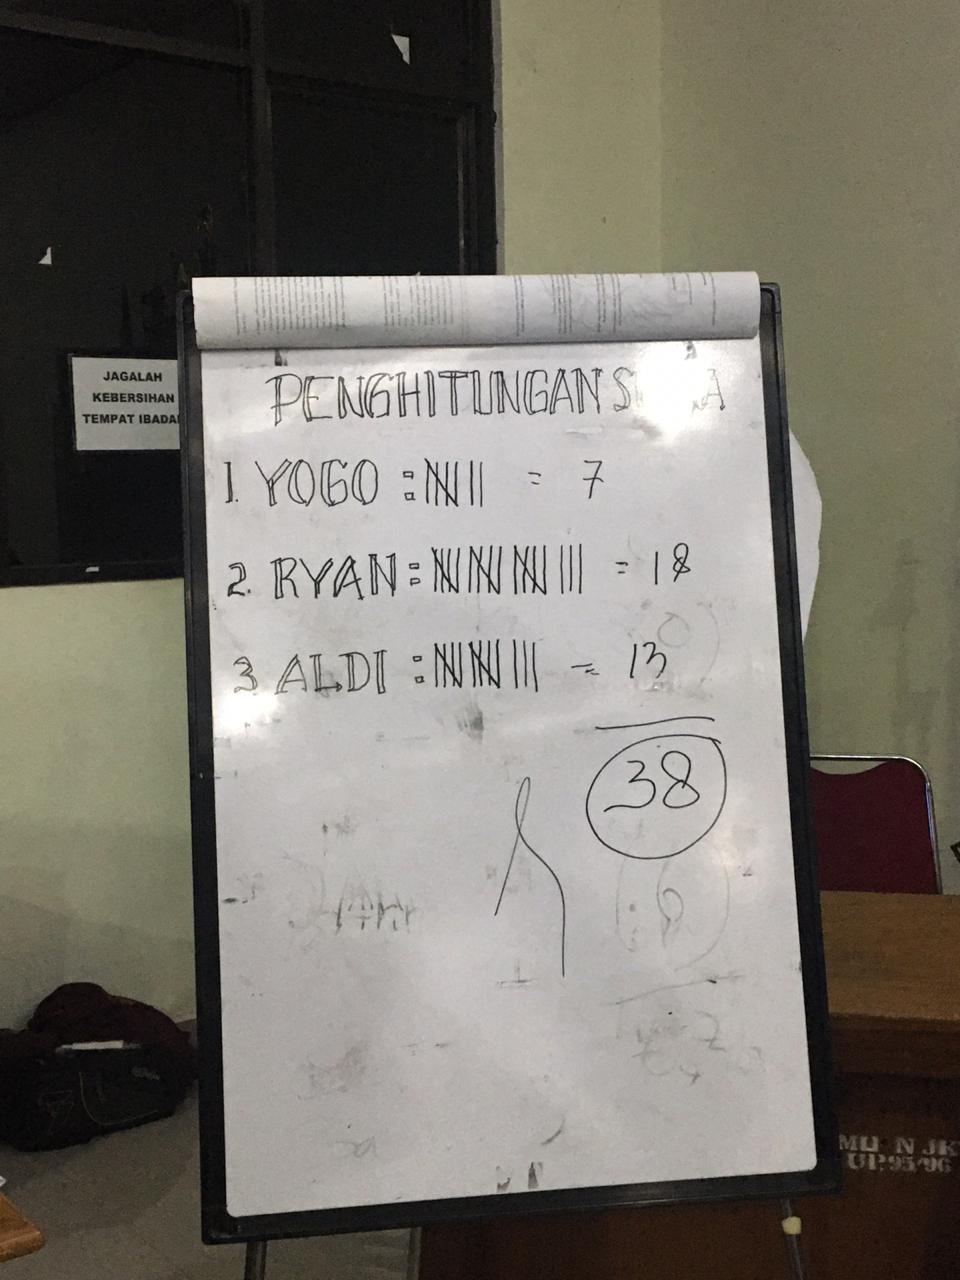 JAGALAH
KEBERSIHAN
TEMPAT IBADAH
PENGHITUNGAN
1. YOGO : = 7
2. RYAN : = 18
3. ALDI : = 13
38
UP.95/96